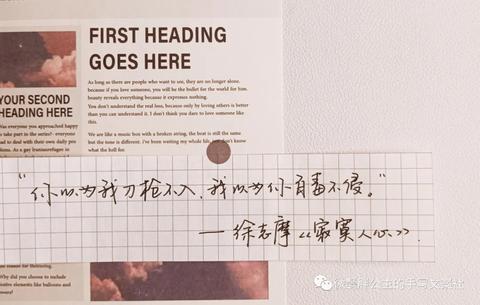 FIRST HEADING
GOES HERE
As long as there are people who want to see, they are no longer alone.
because if you love someone, you will be the bullet for the world for him.
beauty reveals everything because it expresses nothing.
You don't understand the real loss, because only by loving others is better
than you can understand it. I don't think you dare to love someone like
this.
We are like a music box with a broken string, the beat is still the same
but the tone is different. I've been waiting my whole life, just don't know
what the hell for.
YOUR SECOND
HEADING HERE
Was everyone you approached happy
to take part in the series? - everyone
had to deal with their own daily
problems. As a gay
“你以为我刀枪不入,我以为你百毒不侵。”
—徐志摩《寂寞人心》.
for
Why did you choose to include
elements like balloons and